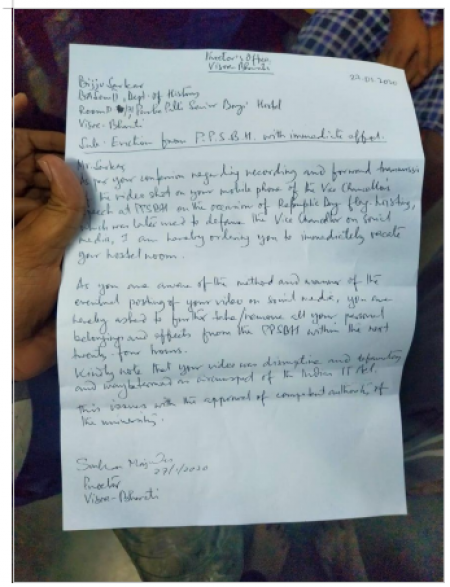 Proctor's Office
Visva-Bharati
27.01.2020
Bijju Sarkar
BA Sem II, Dept. of History
Room Purba Palli Senior Boys' Hostel
Visva-Bharati
Sub: Eviction from P.P.S.B.H. with immediate effect.
Mr. Sarkar,
As per your confession regarding recording and forward transmission
the video shot on your mobile phone of the Vice Chancellor's
speech at PPSBH on the occasion of Republic Day flag hoisting,
which was later used to defame the Vice Chancellor on social
media, I am hereby ordering you to immediately vacate
your hostel room.
As you are aware of the method and manner of the
eventual posting of your video on social media, you are
hereby asked to further take/remove all your personal
belongings and effects from the PPSBH within the next
twenty-four hours.
Kindly note that your video was disruptive and
and may be termed as of the Indian IT Act.
This issues with the approval of competent authority of
the university.
27/1/2020
Proctor
Visva-Bharati